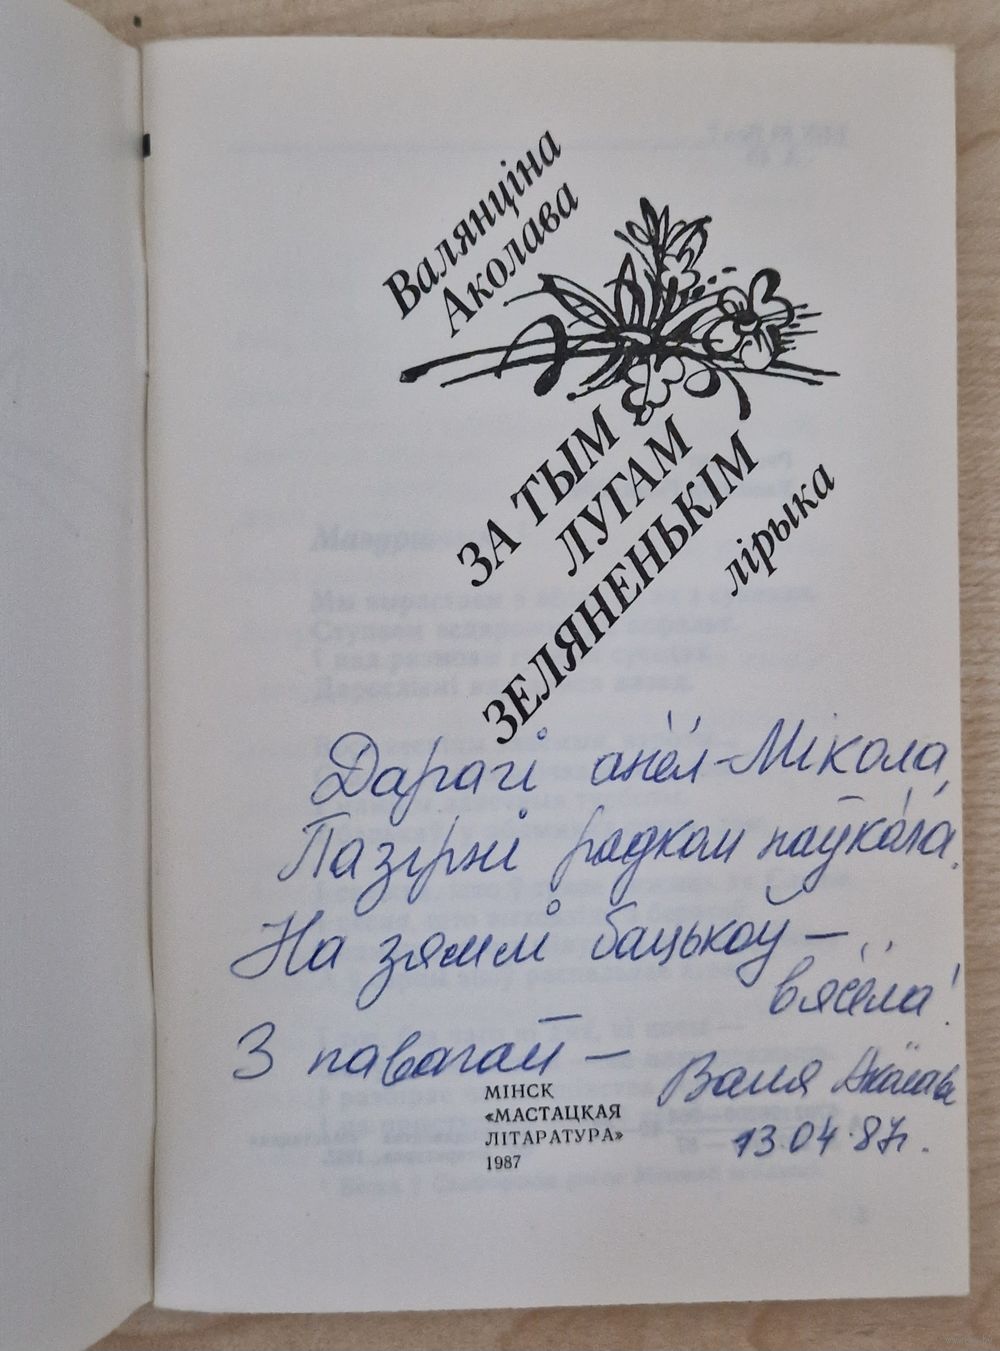 Валянціна
Аколава
ЗА ТЫМ
ЛУГАМ
ЗЕЛЯНЕНЬКІМ
лірыка
Дарагі анёл-Мікола,
Пазірні радком наўкола.
На зямлі бацькоў —
вясёла!
З павагай — Валя Аколава
13.04.87г.
МІНСК
«МАСТАЦКАЯ
ЛІТАРАТУРА»
1987